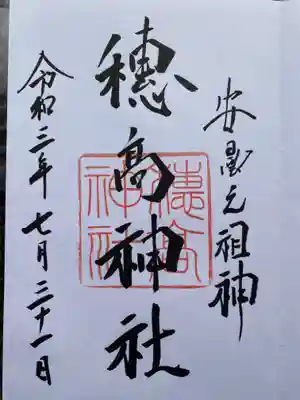 安曇元祖神
穗高神社
穗高神社
令和三年七月三十一日